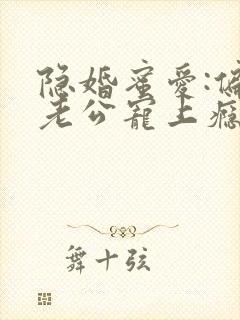 隐婚蜜爱:偏
老公宠上瘾
舞十弦